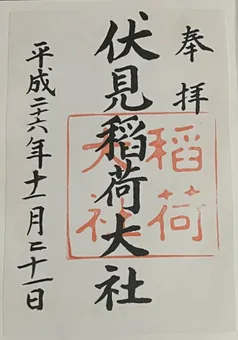 奉拝
伏見稲荷大社
稲荷大社
平成二十六年十一月二十一日